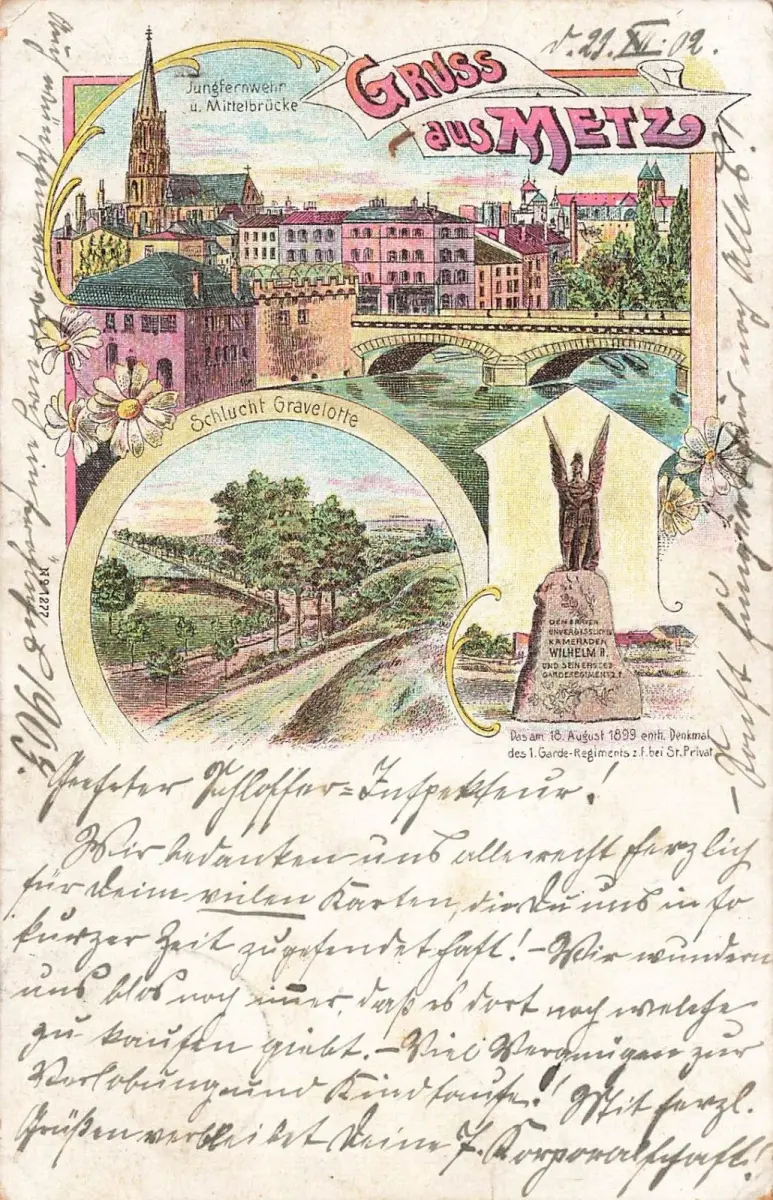 d. 29. XII. 02.
GRUSS
aus METZ
Jungfernwehr
u. Mittelbrücke
Schlucht Gravelotte
Nº 1277
DEM ERSTEN
UNVERGESSLICHEN
KAMERADEN
WILHELM II.
UND SEIN ERSTES
GARDEREGIMENT Z. F.
Das am 18. August 1899 enth. Denkmal
des 1. Garde-Regiments z. F. bei St. Privat
Geehrter Schlosser=Inspekteur!
Wir bedanken uns alle recht herzlich
für Deine vielen Karten, die Du uns in so
kurzer Zeit zugesendet hast! – Wir wundern
uns blos noch immer, daß es dort noch welche
zu kaufen giebt. – Viel Vergnügen zur
Verlobung und Kindtaufe! Mit herzl.
Grüßen verbleibet Deine 7. Korporalschaft!
– Sonst hier noch Alles
noch ein 1903.